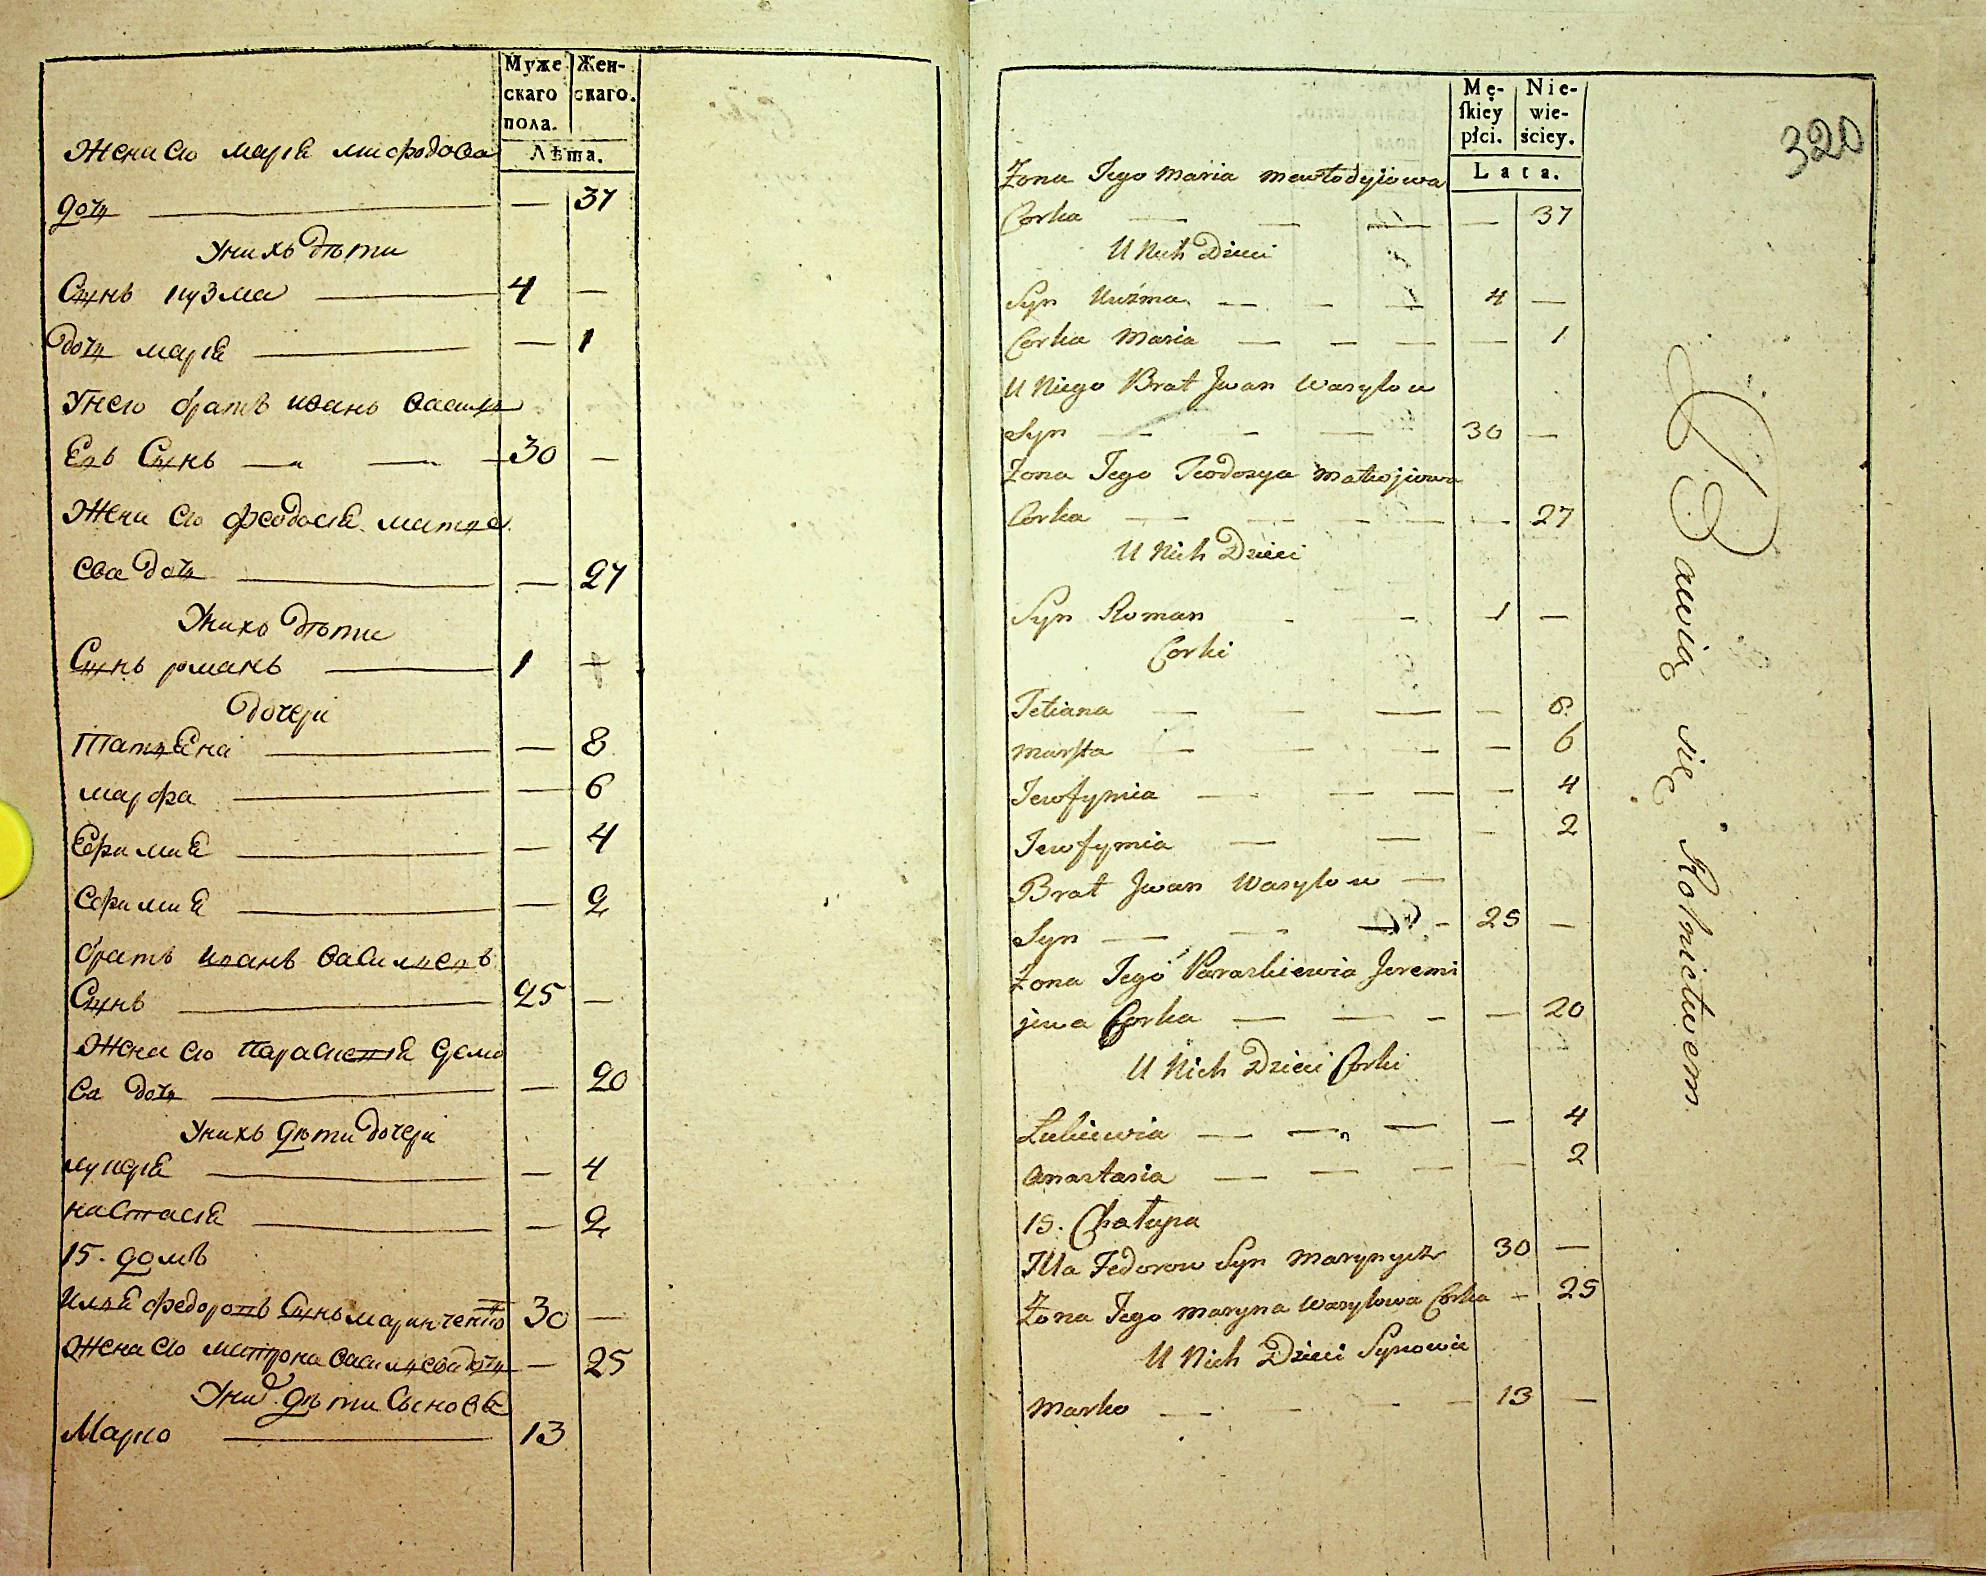 Муже
скаго
пола.
Жен-
скаго.
Лѣта.
Жена его марія мифодова
дочь — 37
У нихъ дѣти
Сынъ кузма 4 —
дочь марія — 1
У него братъ иванъ васильевъ
Сынъ 30 —
Жена его феодосія матве
ева дочь — 27
У нихъ дѣти
Сынъ романъ 1 —
дочери
Татьяна — 8
марфа — 6
Ефимия — 4
Ефимия — 2
братъ иванъ васильевъ
Сынъ 25 —
Жена его параскевія
ва дочь — 20
У нихъ дѣти дочери
лукерія — 4
настасія — 2
15. домъ
илья федоровъ Сынъ маринченко 30 —
Жена его матрона васильева дочь — 25
У них дѣти Сыновья
Марко 13
Mę-
ſkiey
płci.
Nie-
wie-
ściey.
Lata.
320
Żona Jego Maria mewtodyiowa
Corka — 37
U Nich Dzieci
Syn Kuźma 4 —
Corka Maria — 1
U Niego Brat Jwan Wasylow
Syn 30 —
Żona Jego Teodozya matwijowa
Corka — 27
U Nich Dzieci
Syn Roman 1 —
Corki
Tetiana — 8
marfta — 6
Jewfymia — 4
Jewfymia — 2
Brat Jwan Wasylow
Syn 25 —
Żona Jego Paraskiewia Jeremi
jewa Corka — 20
U Nich Dzieci Corki
Łukiewia — 4
Anastasia — 2
15. Chałupa
Illa Fedorow Syn Marynycz 30 —
Żona Jego Maryna Wasylowa Corka — 25
U Nich Dzieci Synowie
Marko 13 —
Bawią się Rolnictwem